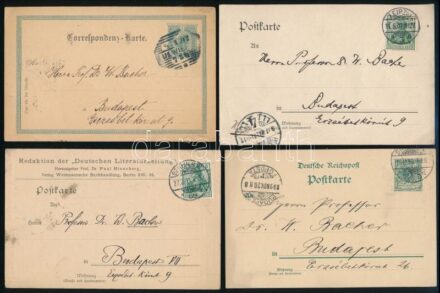 Correspondenz-Karte.
Herrn Prof. Dr. W. Bacher
Budapest
Erzsébet körút 9.
Postkarte
An
Herrn Professor Dr. W. Bacher
in Budapest
Wohnung
Erzsébetkörút 9
Redaktion der „Deutschen Literaturzeitung"
Herausgeber Prof. Dr. Paul Hinneberg.
Verlag Weidmannsche Buchhandlung, Berlin SW.
Postkarte
Herrn
Professor Dr. W. Bacher
in Budapest VII
Wohnung
Erzsébet körút 9
Deutsche Reichspost
Postkarte
Herrn Professor
Dr. W. Bacher
in Budapest
Wohnung
Erzsébetkörút 26
darabanth